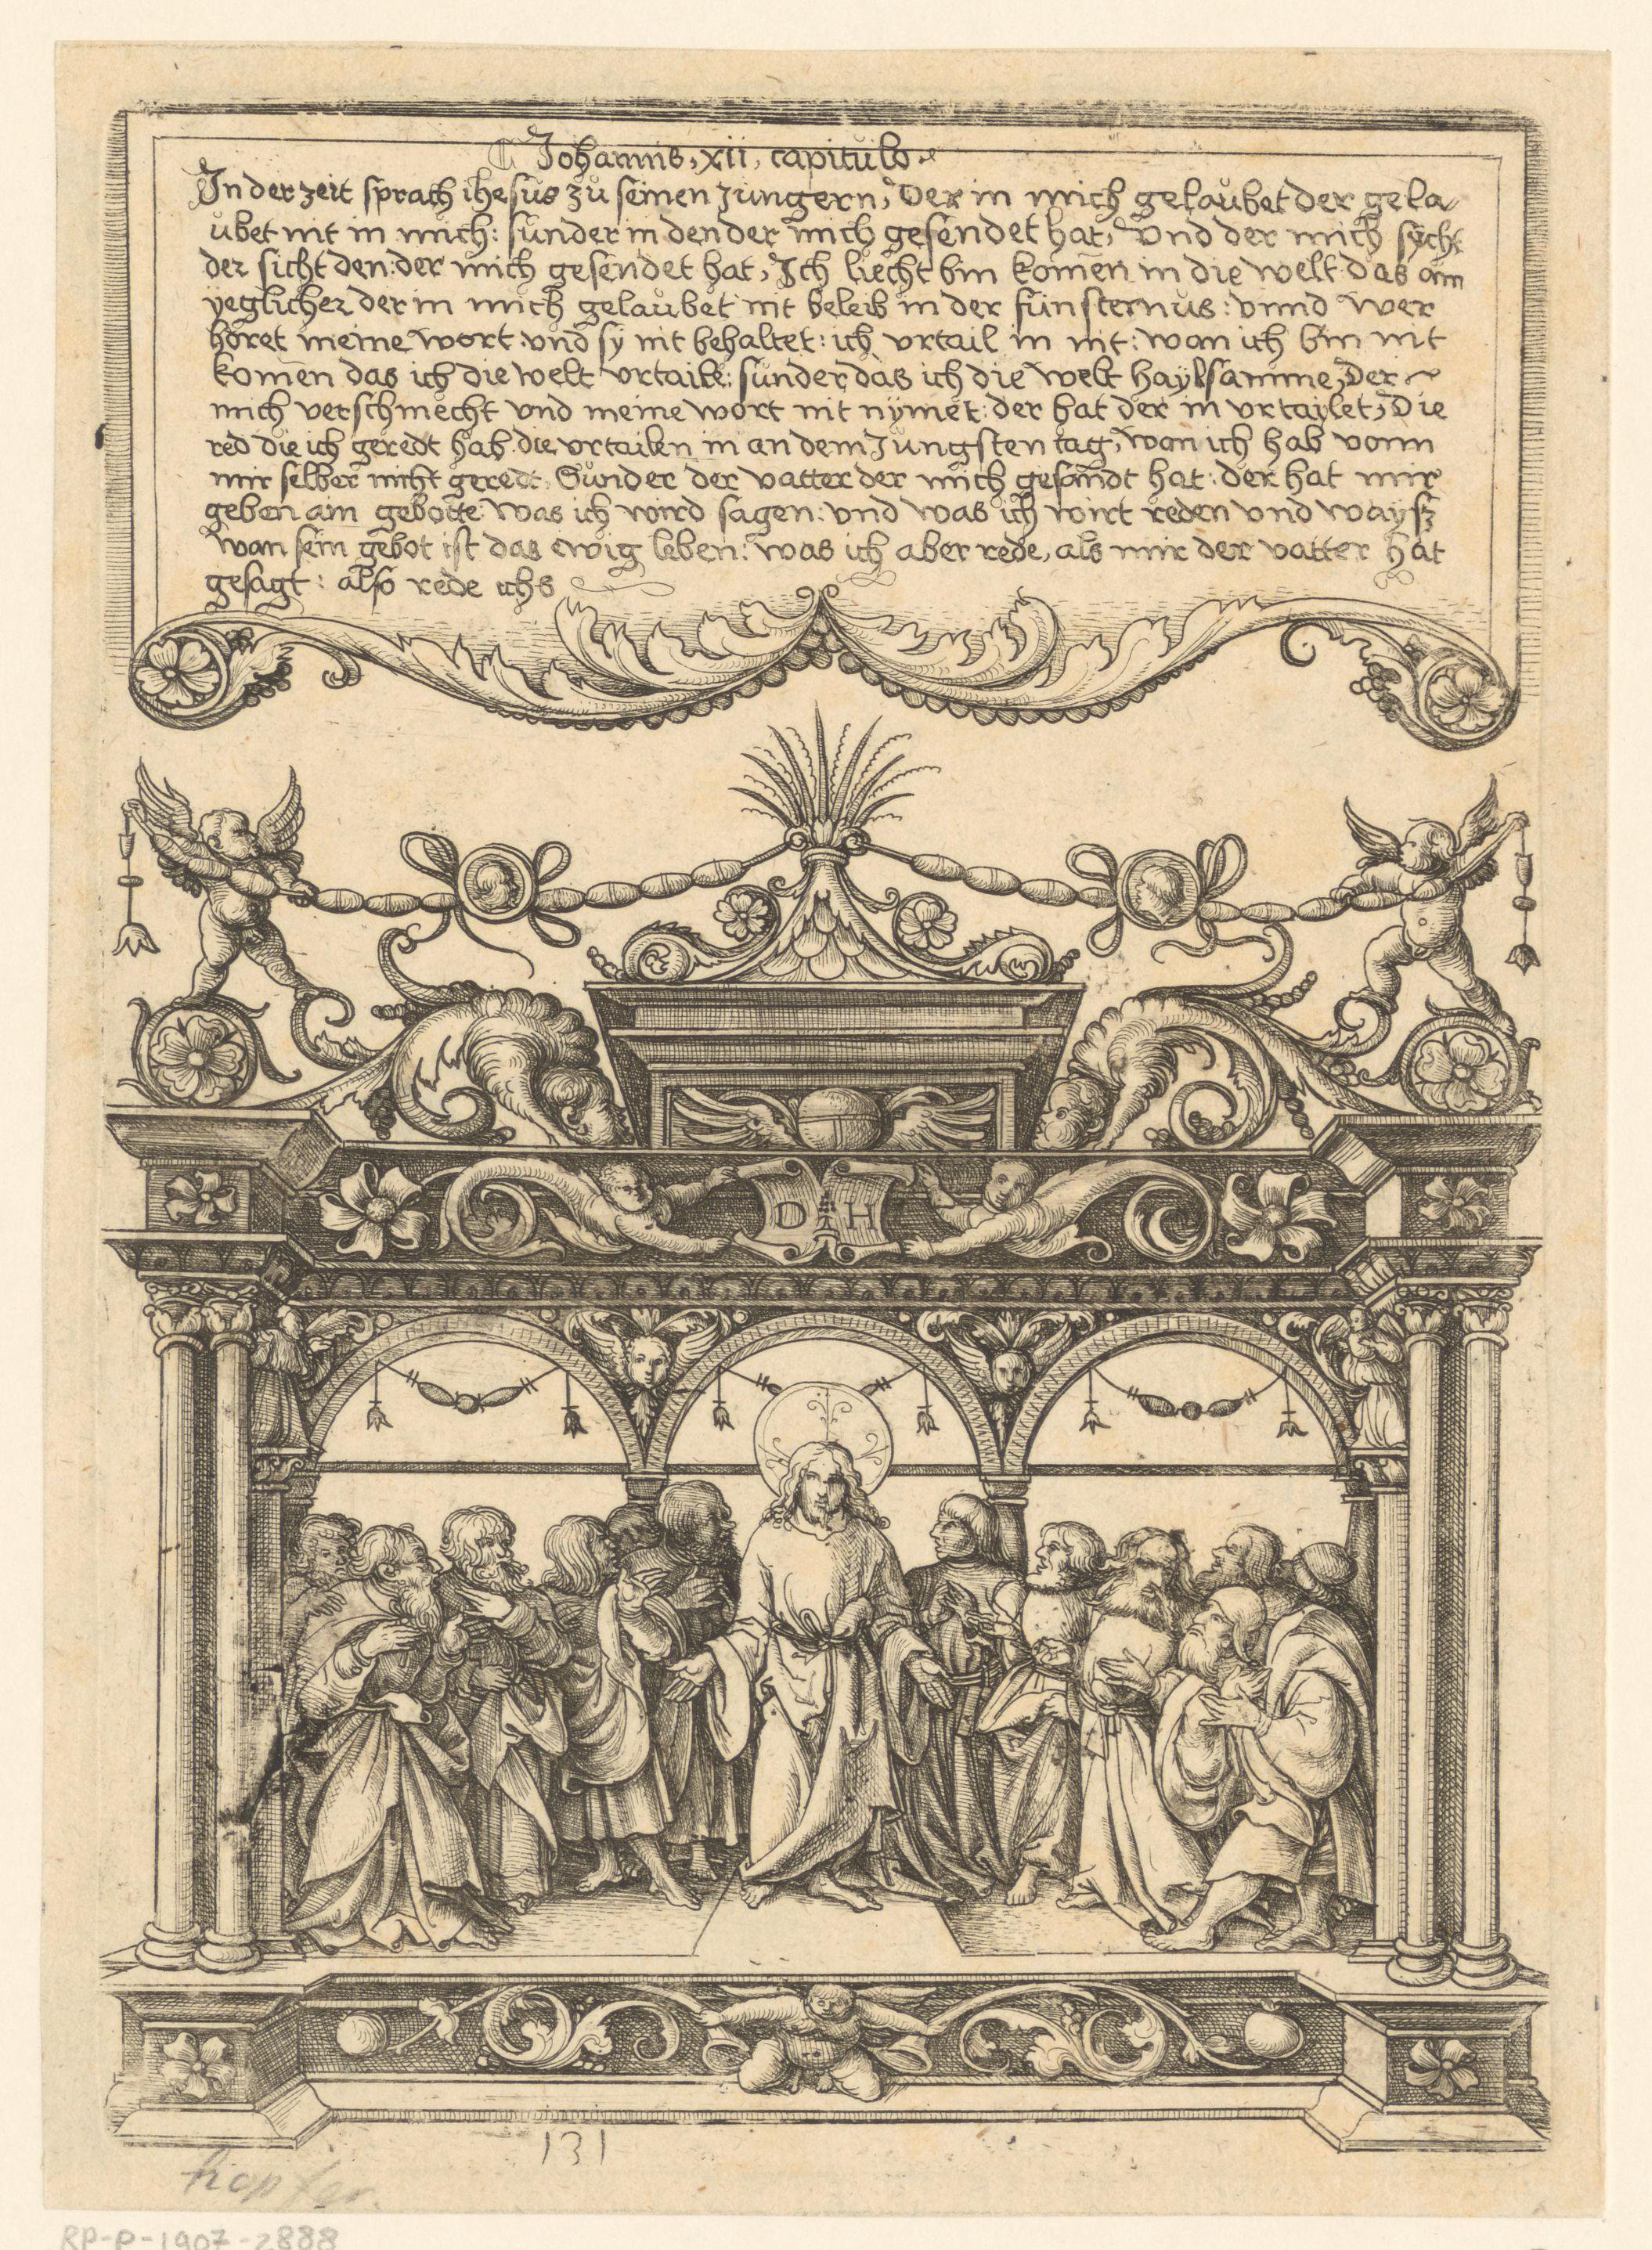 Johannis, xii, capitulo
In der zeit sprach ihesus zu seinen Jungern, Der in mich gelaubet der gela
ubet nit in mich: sunder in den der mich gesendet hat, Vnd der mich sycht
der sicht den: der mich gesendet hat, Ich liecht bin komen in die welt das ain
yeglicher der in mich gelaubet nit beleib in der finsternus: vnnd wer
höret meine wort: vnd sy nit behaltet: ich vrtail in nit: wan ich bin nit
komēn das ich die welt vrtaile: sunder das ich die welt haylsamme, Der
mich verschmecht vnd meine wort nit nymet: der hat der in vrtaylet, Die
red die ich geredt hab die vrtailen in an dem Jungsten tag, wan ich hab vonn
mir selber nicht geredt, Sunder der vatter der mich gesandt hat: der hat mir
geben ain gebotte was ich wird sagen: vnd was ich wirt reden vnd wayſz
wan sein gebot ist das ewig leben: was ich aber rede, als mir der vatter hat
gesagt: also rede ichs
D H
131
hopfer.
RP-P-1907-2888